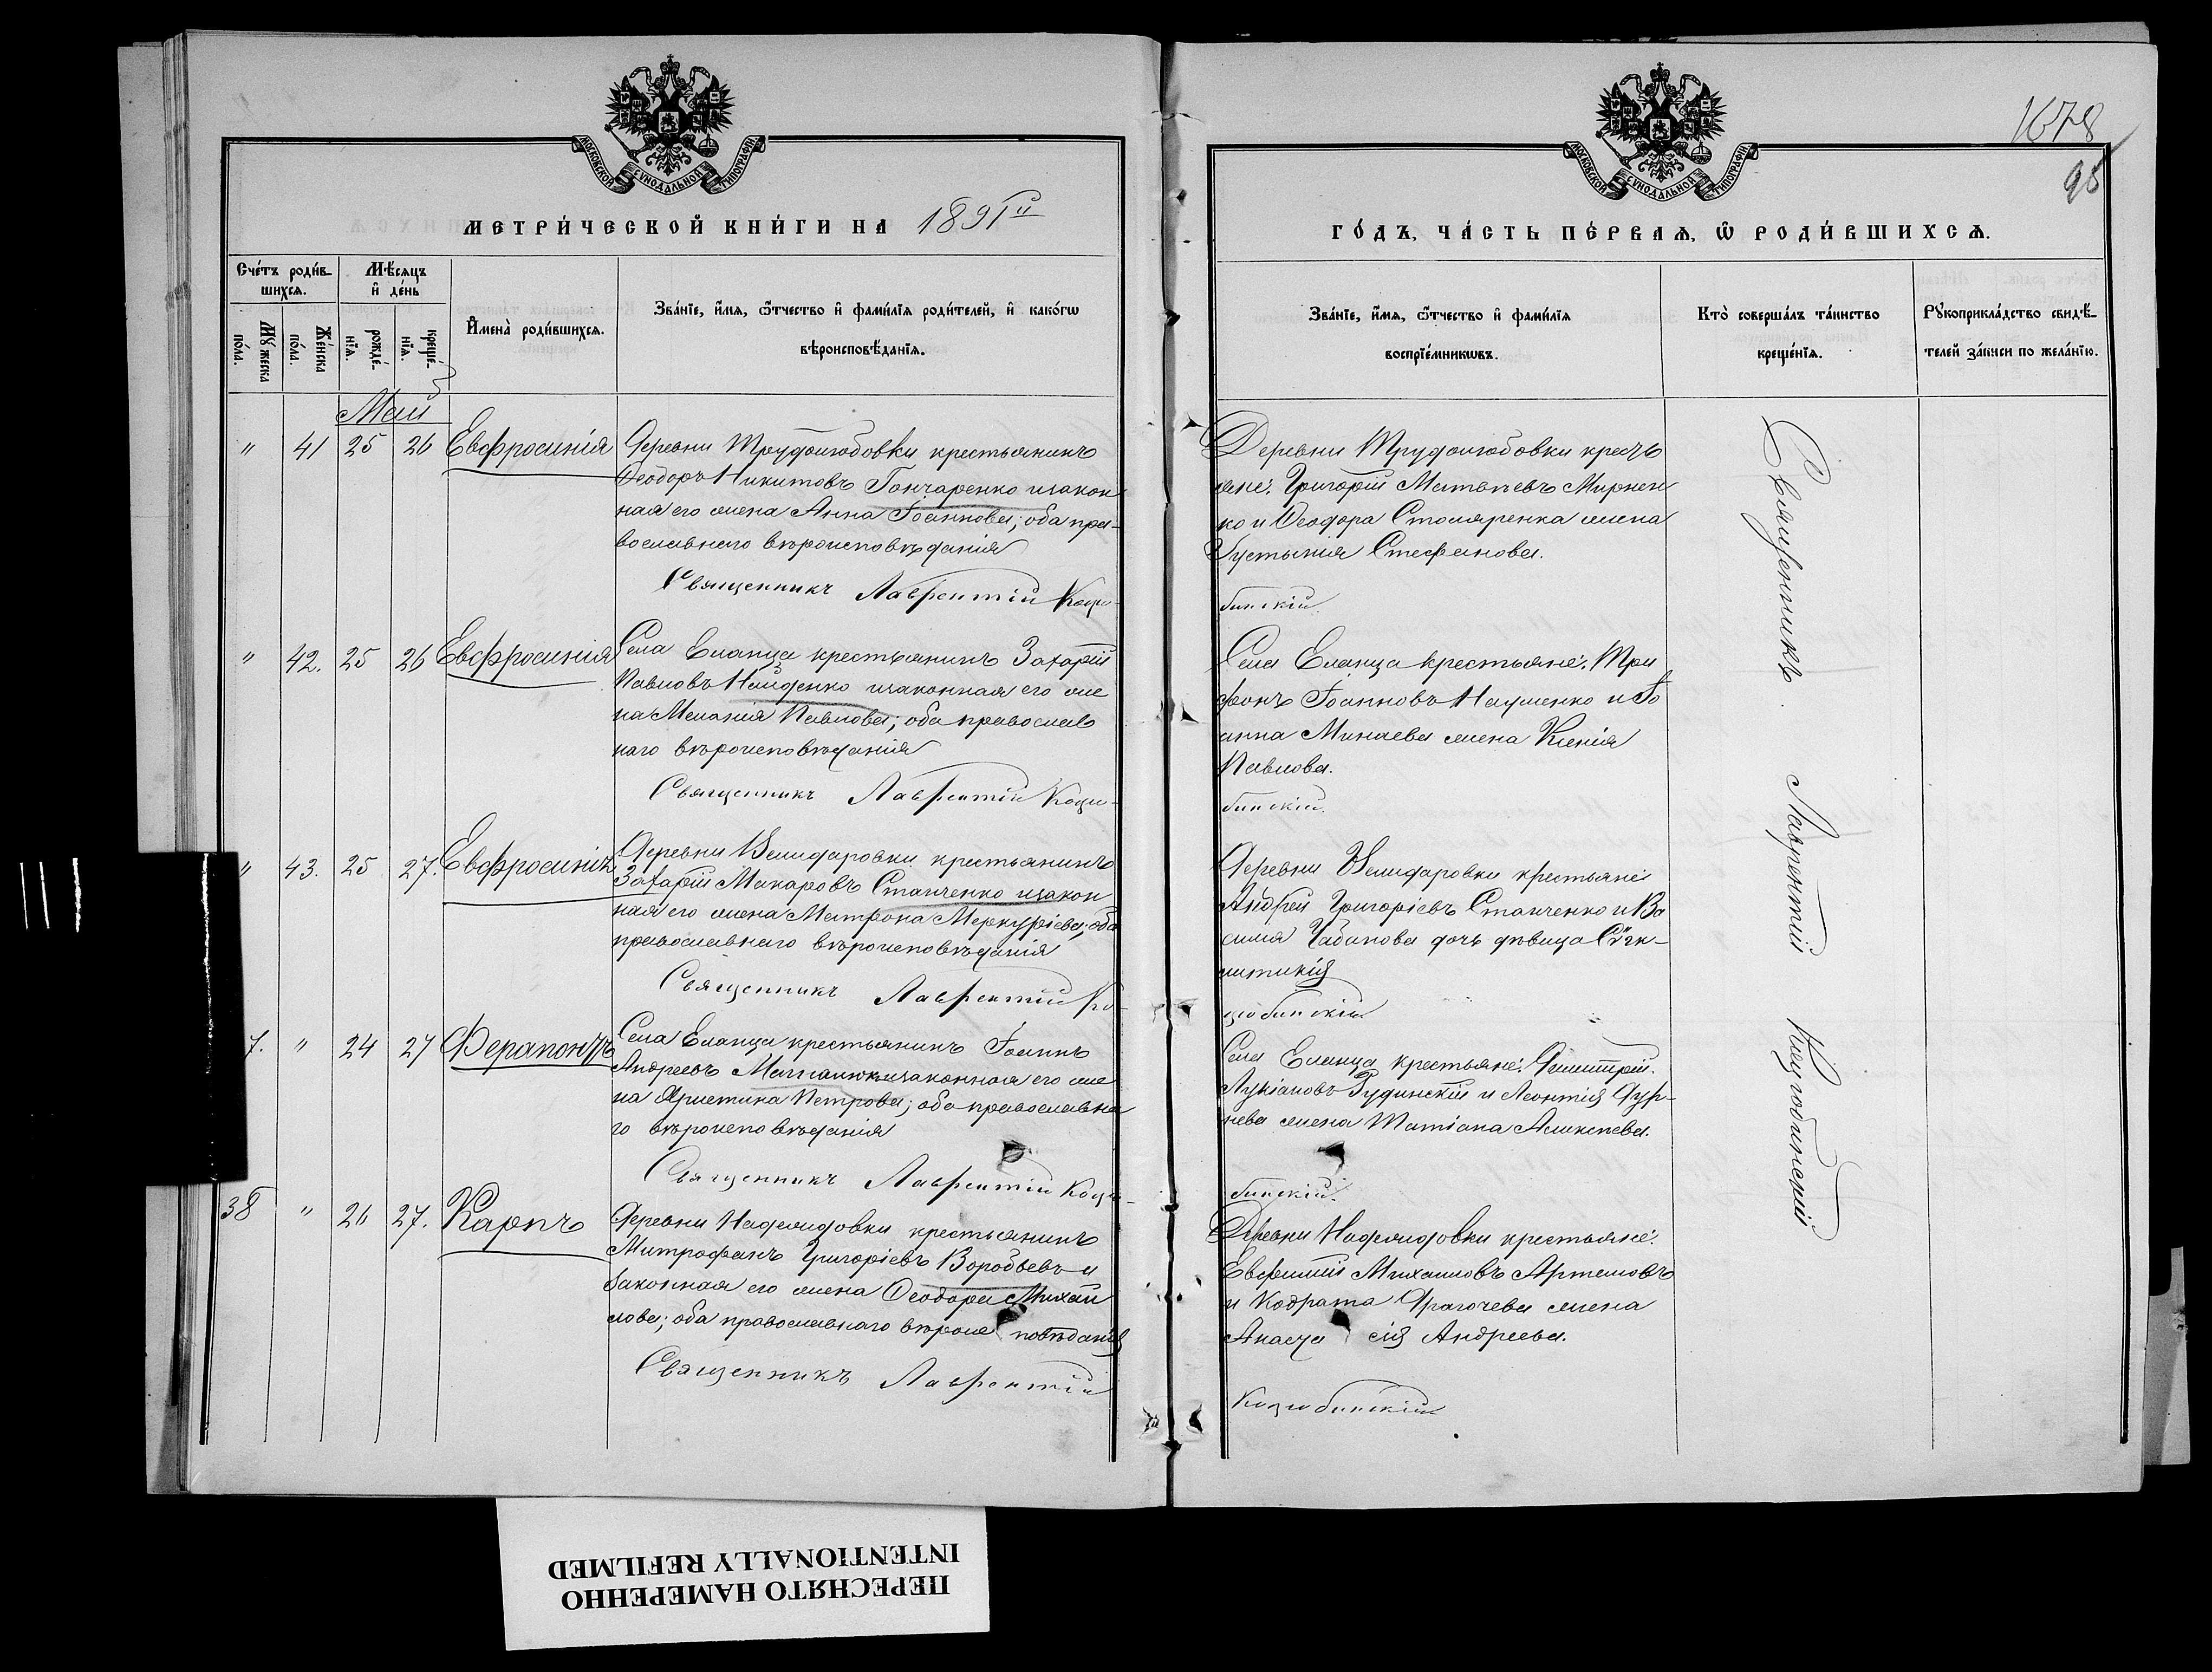 МОСКОВСКОЙ СѴНОДАЛЬНОЙ ТИПОГРАФІИ
МЕТРИ́ЧЕСКОЙ КНИ́ГИ НА 1891й
Сче́тъ роди́в-
шихсѧ.
Мѣ́сѧцъ
и҆ де́нь
Мꙋ́жеска
по́ла.
Же́нска
по́ла.
рожде́-
нїѧ.
креще́-
нїѧ.
И҆мена̀ роди́вшихсѧ.
Зва́нїе, и҆́мѧ, ѻ҆́тчество и҆ фами́лїѧ роди́телей, и҆ како́гѡ
вѣроисповѣ́данїѧ.
Май
" 41 25 26 Евфросинія
Деревни Трудолюбовки крестьянинъ
Ѳеодоръ Никитовъ Гончаренко изакон
ная его жена Анна Іоаннова; оба пра-
вославнаго вѣроисповѣданія
Священникъ Лаврентій Коцю-
" 42. 25 26 Евфросинія
Села Еланца крестьянинъ Захарій
Павловъ Найденко изаконная его же
на Меланія Павлова; оба православ
наго вѣроисповѣданія
Священникъ Лаврентій Коцю-
" 43. 25 27. Евфросинія
Деревни Велидаровки крестьянинъ
Захарій Макаровъ Станченко изакон
ная его жена Матрона Меркуріева; оба
православнаго вѣроисповѣданія
Священникъ Лаврентій Ко-
7. " 24 27 Ферапонтъ
Села Еланца крестьянинъ Іоаннъ
Андреевъ изаконная его же
на Христина Петрова; оба православна
го вѣроисповѣданія
Священникъ Лаврентій Коцю-
38 " 26 27. Карпъ
Деревни Наделидовки крестьянинъ
Митрофанъ Григоріевъ Воробьевъ и
законная его жена Ѳеодора Михаи
лова; оба православнаго вѣроис повѣданія
Священникъ Лаврентій
1678
98
МОСКОВСКОЙ СѴНОДАЛЬНОЙ ТИПОГРАФІИ
ГО́ДЪ, ЧА́СТЬ ПЕ́РВАѦ, Ѡ҆ РОДИ́ВШИХСѦ.
Зва́нїе, и҆́мѧ, ѻ҆́тчество и҆ фами́лїѧ
воспрїе́мникѡвъ.
Кто̀ соверша́лъ та́инство
креще́нїѧ.
Рꙋкоприкла́дство свидѣ́-
телей за́писи по жела́нїю.
Деревни Трудолюбовки кресть
яне: Григорій Матвѣевъ Мирнен
ко и Ѳеодора Столяренка жена
Іустинія Стефанова.
бинскій.
Села Еланца крестьяне: Три
фонъ Іоанновъ Науменко и Іо
анна Минаева жена Ксенія
Павлова.
бинскій.
Деревни Велидаровки крестьяне
Андрей Григоріевъ Станченко и Ва
силія Чабанова дочь дѣвица Сѵгк-
литикія
цюбинскій
Села Еланца крестьяне: Димитрій
Лукіановъ Рудинскій и Леонтія
жена Татіана Алексѣева.
бинскій.
Деревни Наделидовки крестьяне:
Евфимій Михаиловъ Артемовъ
и Кодрата Драгочева жена
Анаста сія Андреева.
Коцюбинскій
Священникъ Лаврентій Коцюбинскій
ПЕРЕСНЯТО НАМЕРЕННО
INTENTIONALLY REFILMED